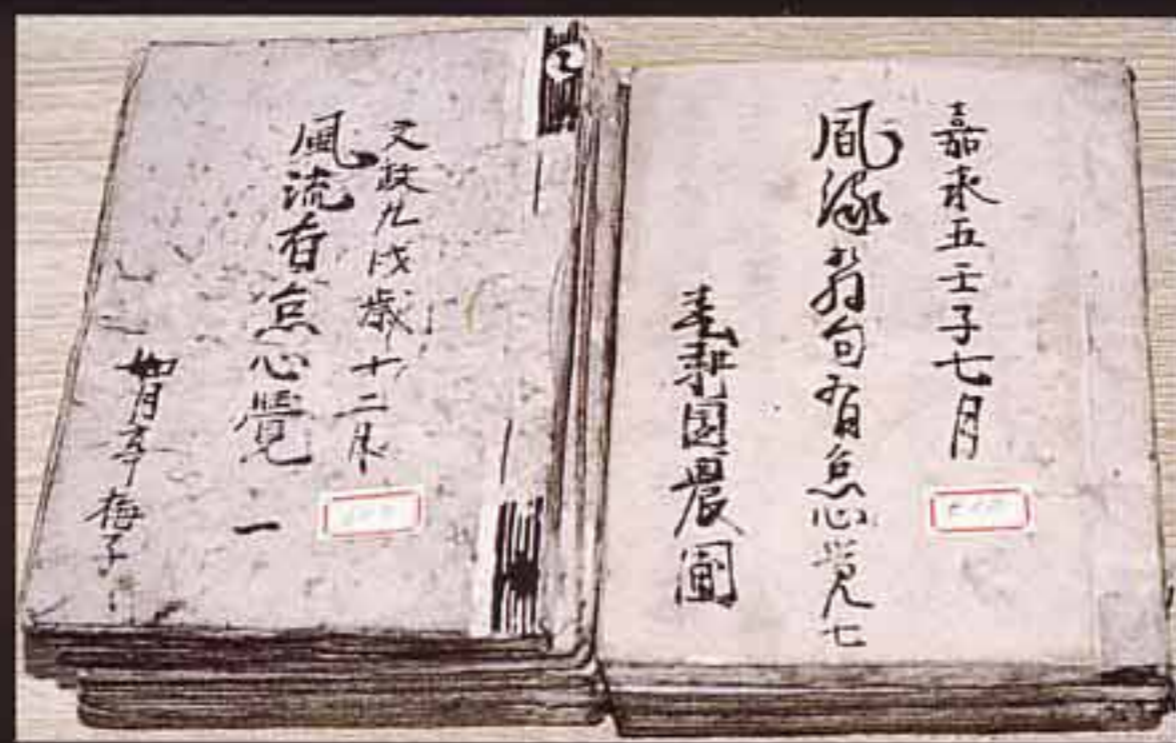 嘉永五壬子七月
風流句有心覚七
園農圃
文政九戌歳十二月
風流有心覺 一
如月亭梅子